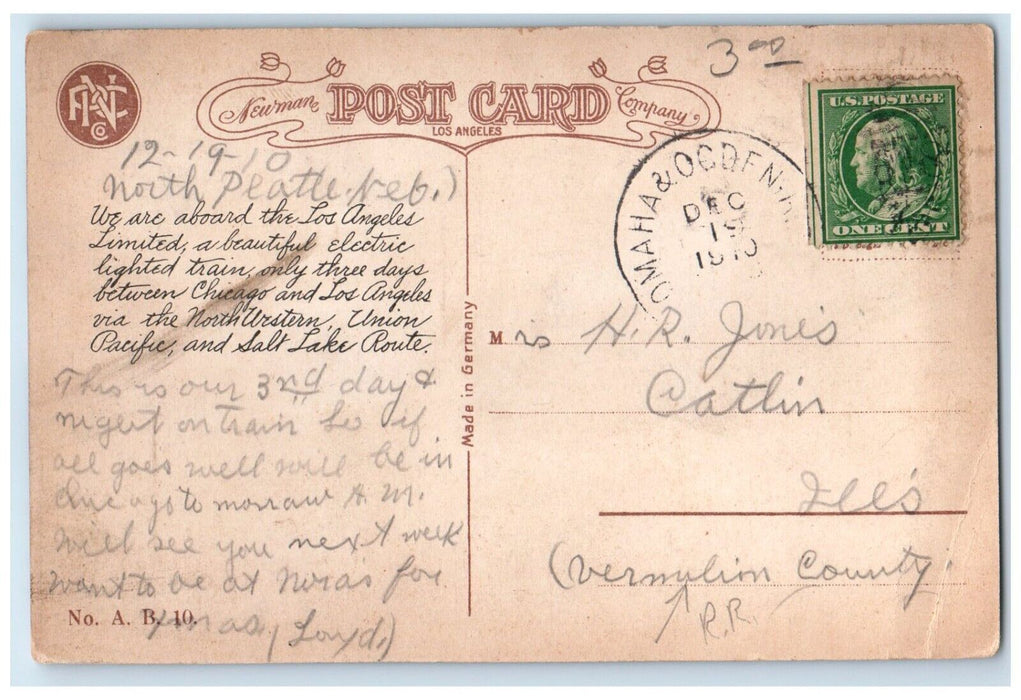 ANNCo
Newman POST CARD Company
LOS ANGELES
3 00
U.S. POSTAGE
ONE CENT
OMAHA & OGDEN
DEC
19
1910
12-19-10
North Platte. Neb.)
We are aboard the Los Angeles
Limited, a beautiful electric
lighted train, only three days
between Chicago and Los Angeles
via the North Western, Union
Pacific, and Salt Lake Route.
This is our 3rd day &
night on train so if
all goes well will be in
Chicago to morraw A.M.
Will see you next week
want to be at Noras for
Xmas, (Loyd.)
No. A. B. 10.
Made in Germany
Mrs H. R. Jones
Catlin
Ills
(Vermilion County.
R.R.